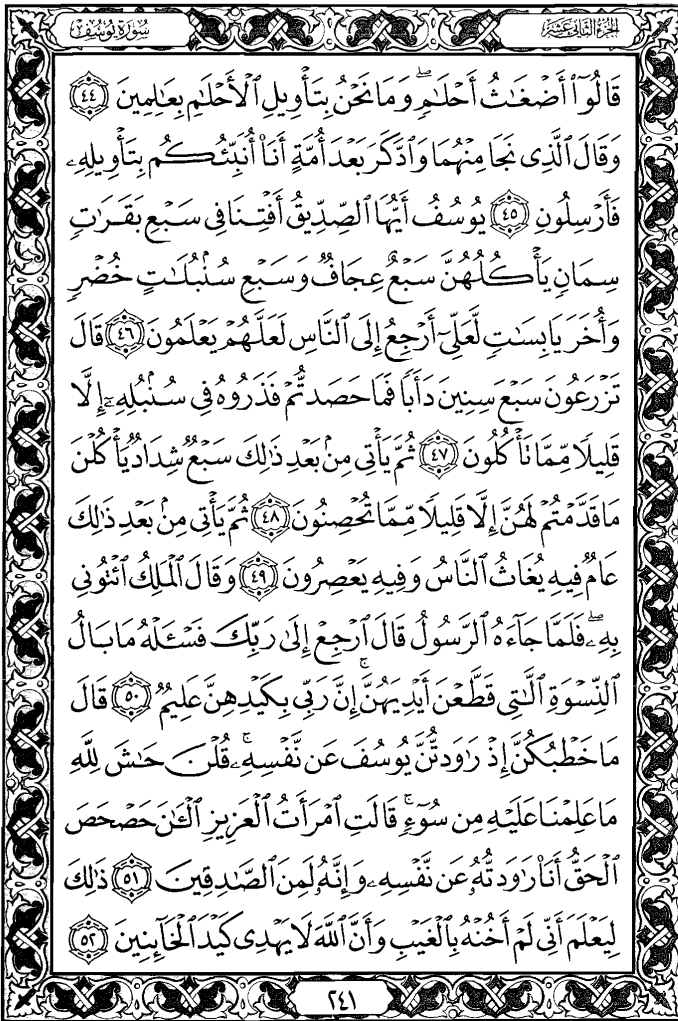 سُورَةُ يُوسُفَ
الجُزْءُ الثَّانِي عَشَرَ
قَالُوٓاْ أَضۡغَٰثُ أَحۡلَٰمٖۖ وَمَا نَحۡنُ بِتَأۡوِيلِ ٱلۡأَحۡلَٰمِ بِعَٰلِمِينَ ٤٤
وَقَالَ ٱلَّذِي نَجَا مِنۡهُمَا وَٱدَّكَرَ بَعۡدَ أُمَّةٍ أَنَا۠ أُنَبِّئُكُم بِتَأۡوِيلِهِۦ
فَأَرۡسِلُونِ ٤٥ يُوسُفُ أَيُّهَا ٱلصِّدِّيقُ أَفۡتِنَا فِي سَبۡعِ بَقَرَٰتٖ
سِمَانٖ يَأۡكُلُهُنَّ سَبۡعٌ عِجَافٞ وَسَبۡعِ سُنۢبُلَٰتٍ خُضۡرٖ
وَأُخَرَ يَابِسَٰتٖ لَّعَلِّيٓ أَرۡجِعُ إِلَى ٱلنَّاسِ لَعَلَّهُمۡ يَعۡلَمُونَ ٤٦ قَالَ
تَزۡرَعُونَ سَبۡعَ سِنِينَ دَأَبٗا فَمَا حَصَدتُّمۡ فَذَرُوهُ فِي سُنۢبُلِهِۦٓ إِلَّا
قَلِيلٗا مِّمَّا تَأۡكُلُونَ ٤٧ ثُمَّ يَأۡتِي مِنۢ بَعۡدِ ذَٰلِكَ سَبۡعٞ شِدَادٞ يَأۡكُلۡنَ
مَا قَدَّمۡتُمۡ لَهُنَّ إِلَّا قَلِيلٗا مِّمَّا تُحۡصِنُونَ ٤٨ ثُمَّ يَأۡتِي مِنۢ بَعۡدِ ذَٰلِكَ
عَامٞ فِيهِ يُغَاثُ ٱلنَّاسُ وَفِيهِ يَعۡصِرُونَ ٤٩ وَقَالَ ٱلۡمَلِكُ ٱئۡتُونِي
بِهِۦۖ فَلَمَّا جَآءَهُ ٱلرَّسُولُ قَالَ ٱرۡجِعۡ إِلَىٰ رَبِّكَ فَسۡـَٔلۡهُ مَا بَالُ
ٱلنِّسۡوَةِ ٱلَّٰتِي قَطَّعۡنَ أَيۡدِيَهُنَّۚ إِنَّ رَبِّي بِكَيۡدِهِنَّ عَلِيمٞ ٥٠ قَالَ
مَا خَطۡبُكُنَّ إِذۡ رَٰوَدتُّنَّ يُوسُفَ عَن نَّفۡسِهِۦۚ قُلۡنَ حَٰشَ لِلَّهِ
مَا عَلِمۡنَا عَلَيۡهِ مِن سُوٓءٖۚ قَالَتِ ٱمۡرَأَتُ ٱلۡعَزِيزِ ٱلۡـَٰٔنَ حَصۡحَصَ
ٱلۡحَقُّ أَنَا۠ رَٰوَدتُّهُۥ عَن نَّفۡسِهِۦ وَإِنَّهُۥ لَمِنَ ٱلصَّٰدِقِينَ ٥١ ذَٰلِكَ
لِيَعۡلَمَ أَنِّي لَمۡ أَخُنۡهُ بِٱلۡغَيۡبِ وَأَنَّ ٱللَّهَ لَا يَهۡدِي كَيۡدَ ٱلۡخَآئِنِينَ ٥٢
٢٤١